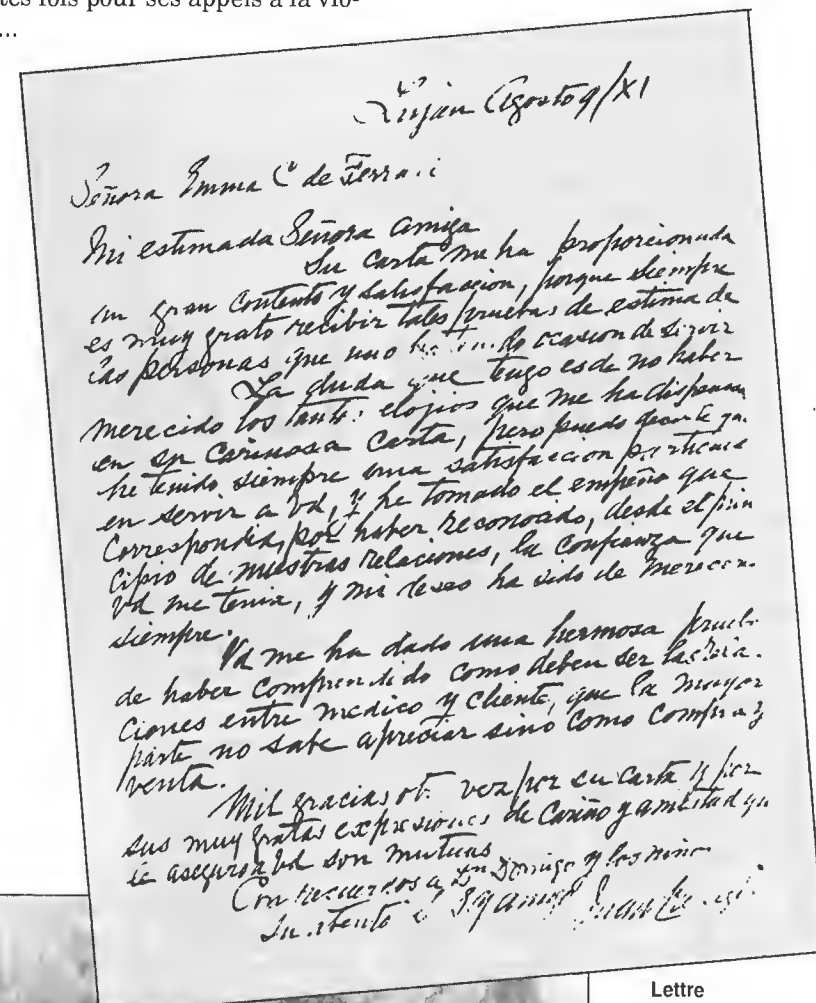 tes fois pour ses appels à la vio-
...
Luján Agosto 9/XI
Señora Emma C de Ferrari
Mi estimada Señora amiga
Su carta me ha proporcionado
un gran contento y satisfacción, porque siempre
es muy grato recibir tales pruebas de estima de
las personas que uno ha tenido ocasion de servir
La duda que tengo es de no haber
merecido los tantos elojios que me ha dispensado
en su cariñosa carta, pero puedo decirle que
he tenido siempre una satisfaccion particular
en servir a Vd, y he tomado el empeño que
correspondia, por haber reconocido, desde el prin
cipio de nuestras relaciones, la confianza que
Vd me tenia, y mi deseo ha sido de merecerla
siempre.
Vd me ha dado una hermosa prueba
de haber comprendido como deben ser las rela-
ciones entre medico y cliente, que la mayor
parte no sabe apreciar sino como compra y
venta.
Mil gracias otra vez por su carta y por
sus muy gratas expresiones de cariño y amistad que
le aseguro a Vd son mutuas
Con recuerdos a Dn Domingo y los niños
Su atento S y amigo Juan
Lettre